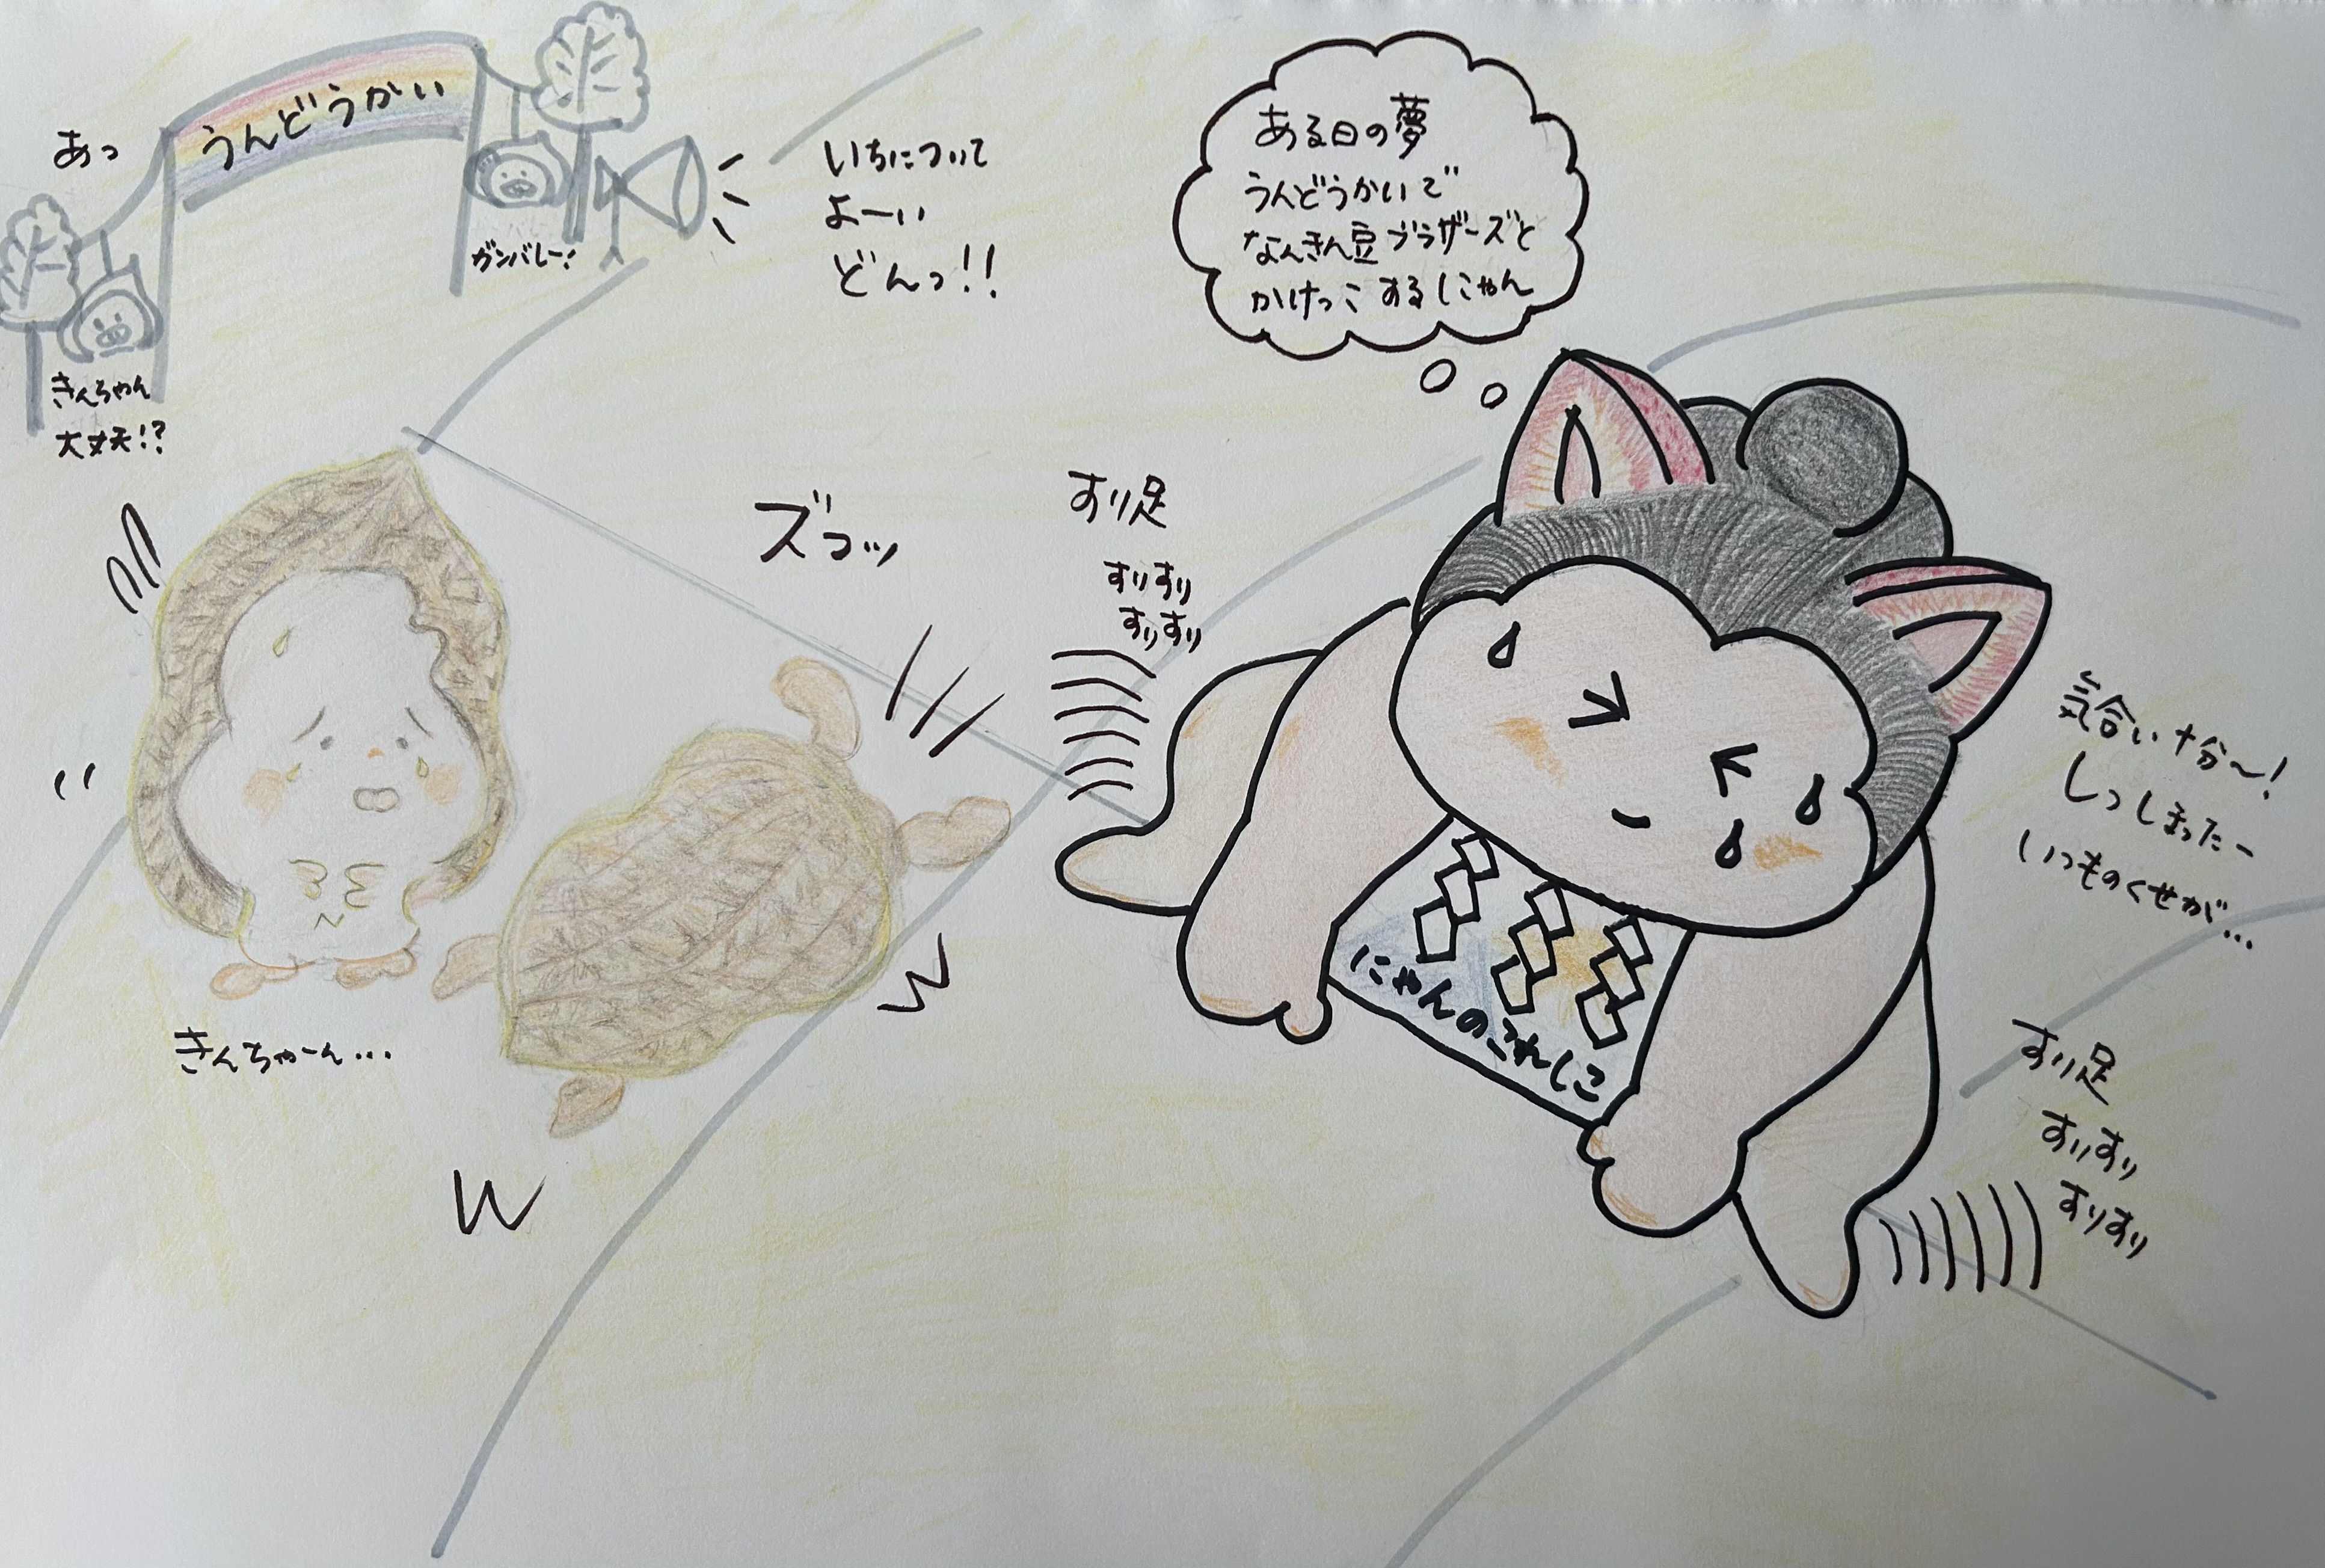 うんどうかい
あっ
ガンバレー!
きんちゃん
大丈夫!?
いちについて
よーい
どんっ!!
ある日の夢
うんどうかいで
なんきん豆ブラザーズと
かけっこするにゃん
ズコッ
すり足
すりすり
すりすり
気合い十分〜!
しっしまったー
いつものくせが…
にゃんのこれしこ
きんちゃーん…
すり足
すりすり
すりすり